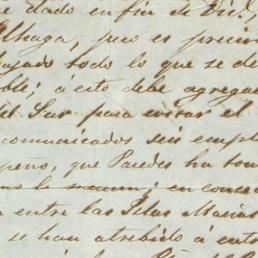 e dado en fin de Dic.
Elhaga, pero es precis
bajado todo lo que se de
ble; á esto debe agrega
del Sur para evitar el
comunicados seis emple
peño, que Paredes ha tom
; en conse
n entre las Islas Marias
se han atrebido á entr